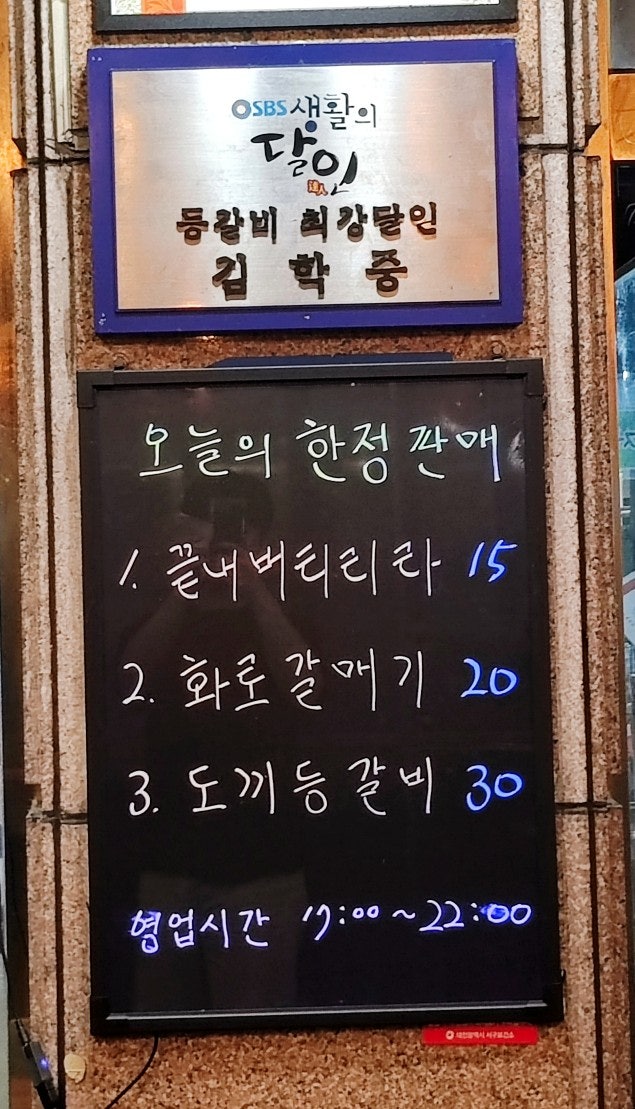 SBS 생활의
달인
達人
등갈비 최강달인
김학중
오늘의 한정판매
1. 끝내버티리라 15
2. 화로갈매기 20
3. 도끼등갈비 30
영업시간 17:00~22:00
대전광역시 서구보건소